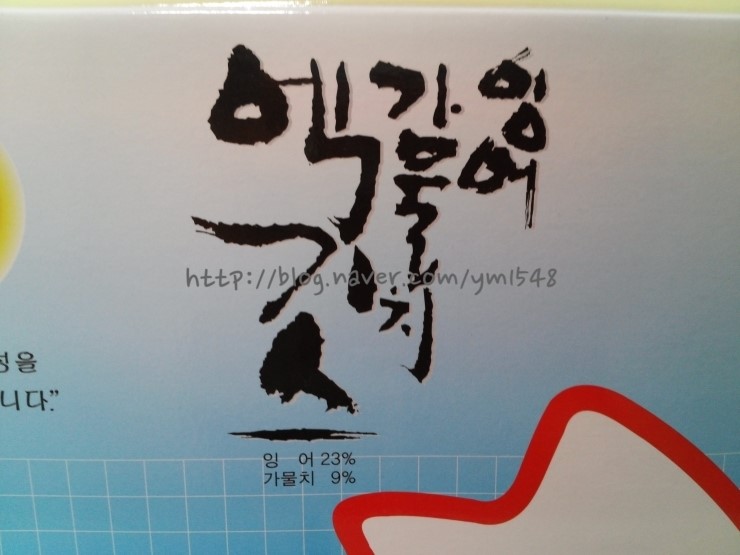 잉어
가물치
엑깃스
http://blog.naver.com/ym1548
성을
니다."
잉 어 23%
가물치 9%